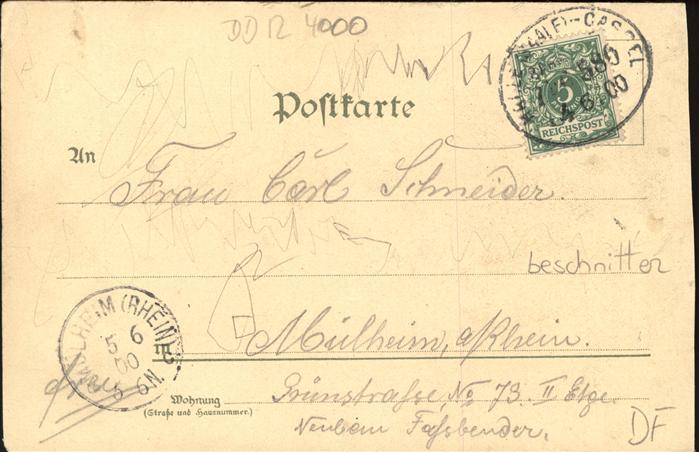 DDR 4000
HALLE (SAALE)-CASSEL
5
4 6 00
REICHSPOST
Postkarte
An
Frau Carl Schneider.
beschnitten
MÜLHEIM (RHEIN)
5 6
00
5-6N.
Mülheim, a/Rhein.
Wohnung
(Straße und Hausnummer.)
Grünstraße, No 73. II Etge.
Neubau Faßbender.
DF